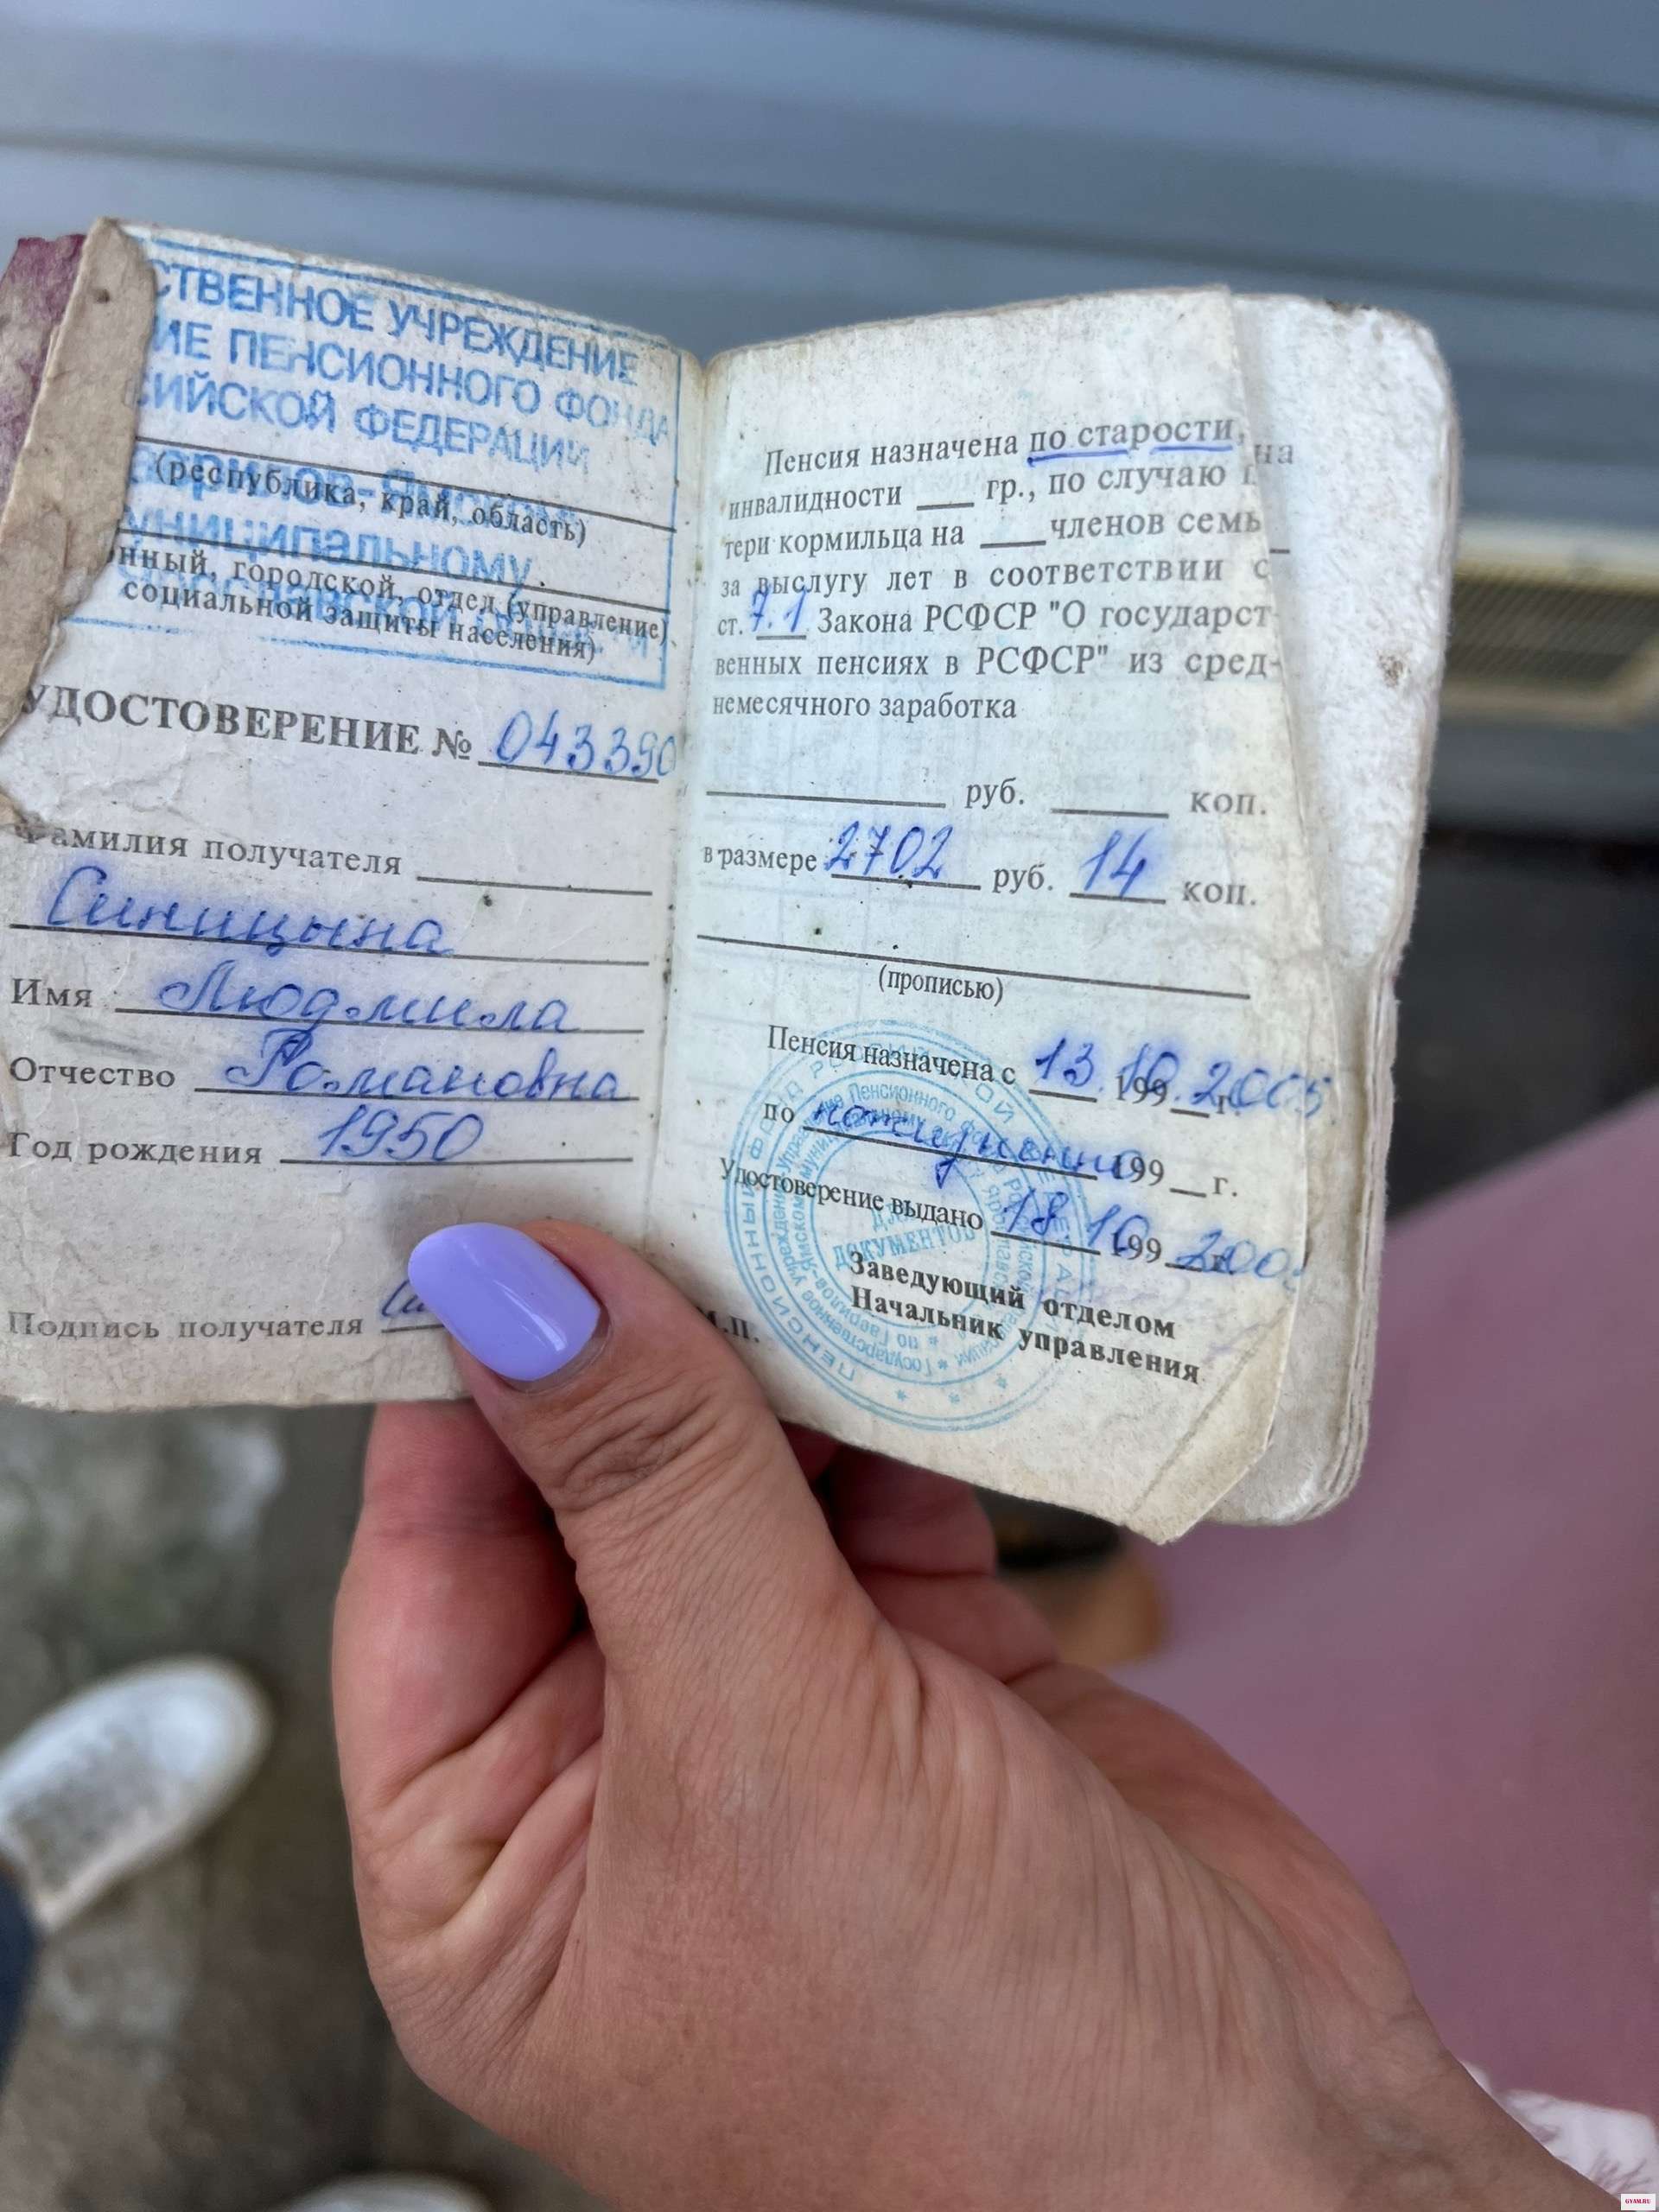 СТВЕННОЕ УЧРЕЖДЕНИЕ
ИЕ ПЕНСИОННОГО ФОНДА
СИЙСКОЙ ФЕДЕРАЦИИ
(республика, край, область)
униципальному
нный, городской, отдел (управление)
социальной защиты населения)
УДОСТОВЕРЕНИЕ № 043390
Фамилия получателя
Синицына
Имя Людмила
Отчество Романовна
Год рождения 1950
Подпись получателя
Пенсия назначена по старости,
на
инвалидности ___ гр., по случаю п
тери кормильца на ___ членов семь
за выслугу лет в соответствии с
ст. 7.1 Закона РСФСР "О государст-
венных пенсиях в РСФСР" из сред-
немесячного заработка
руб. коп.
в размере 2702 руб. 14 коп.
(прописью)
Пенсия назначена с 13.10.2005 199_г.
по 199_г.
Удостоверение выдано 18.10 199_г. 200
М.П.
Заведующий отделом
Начальник управления
ДЛЯ
ДОКУМЕНТОВ
GYAM.RU